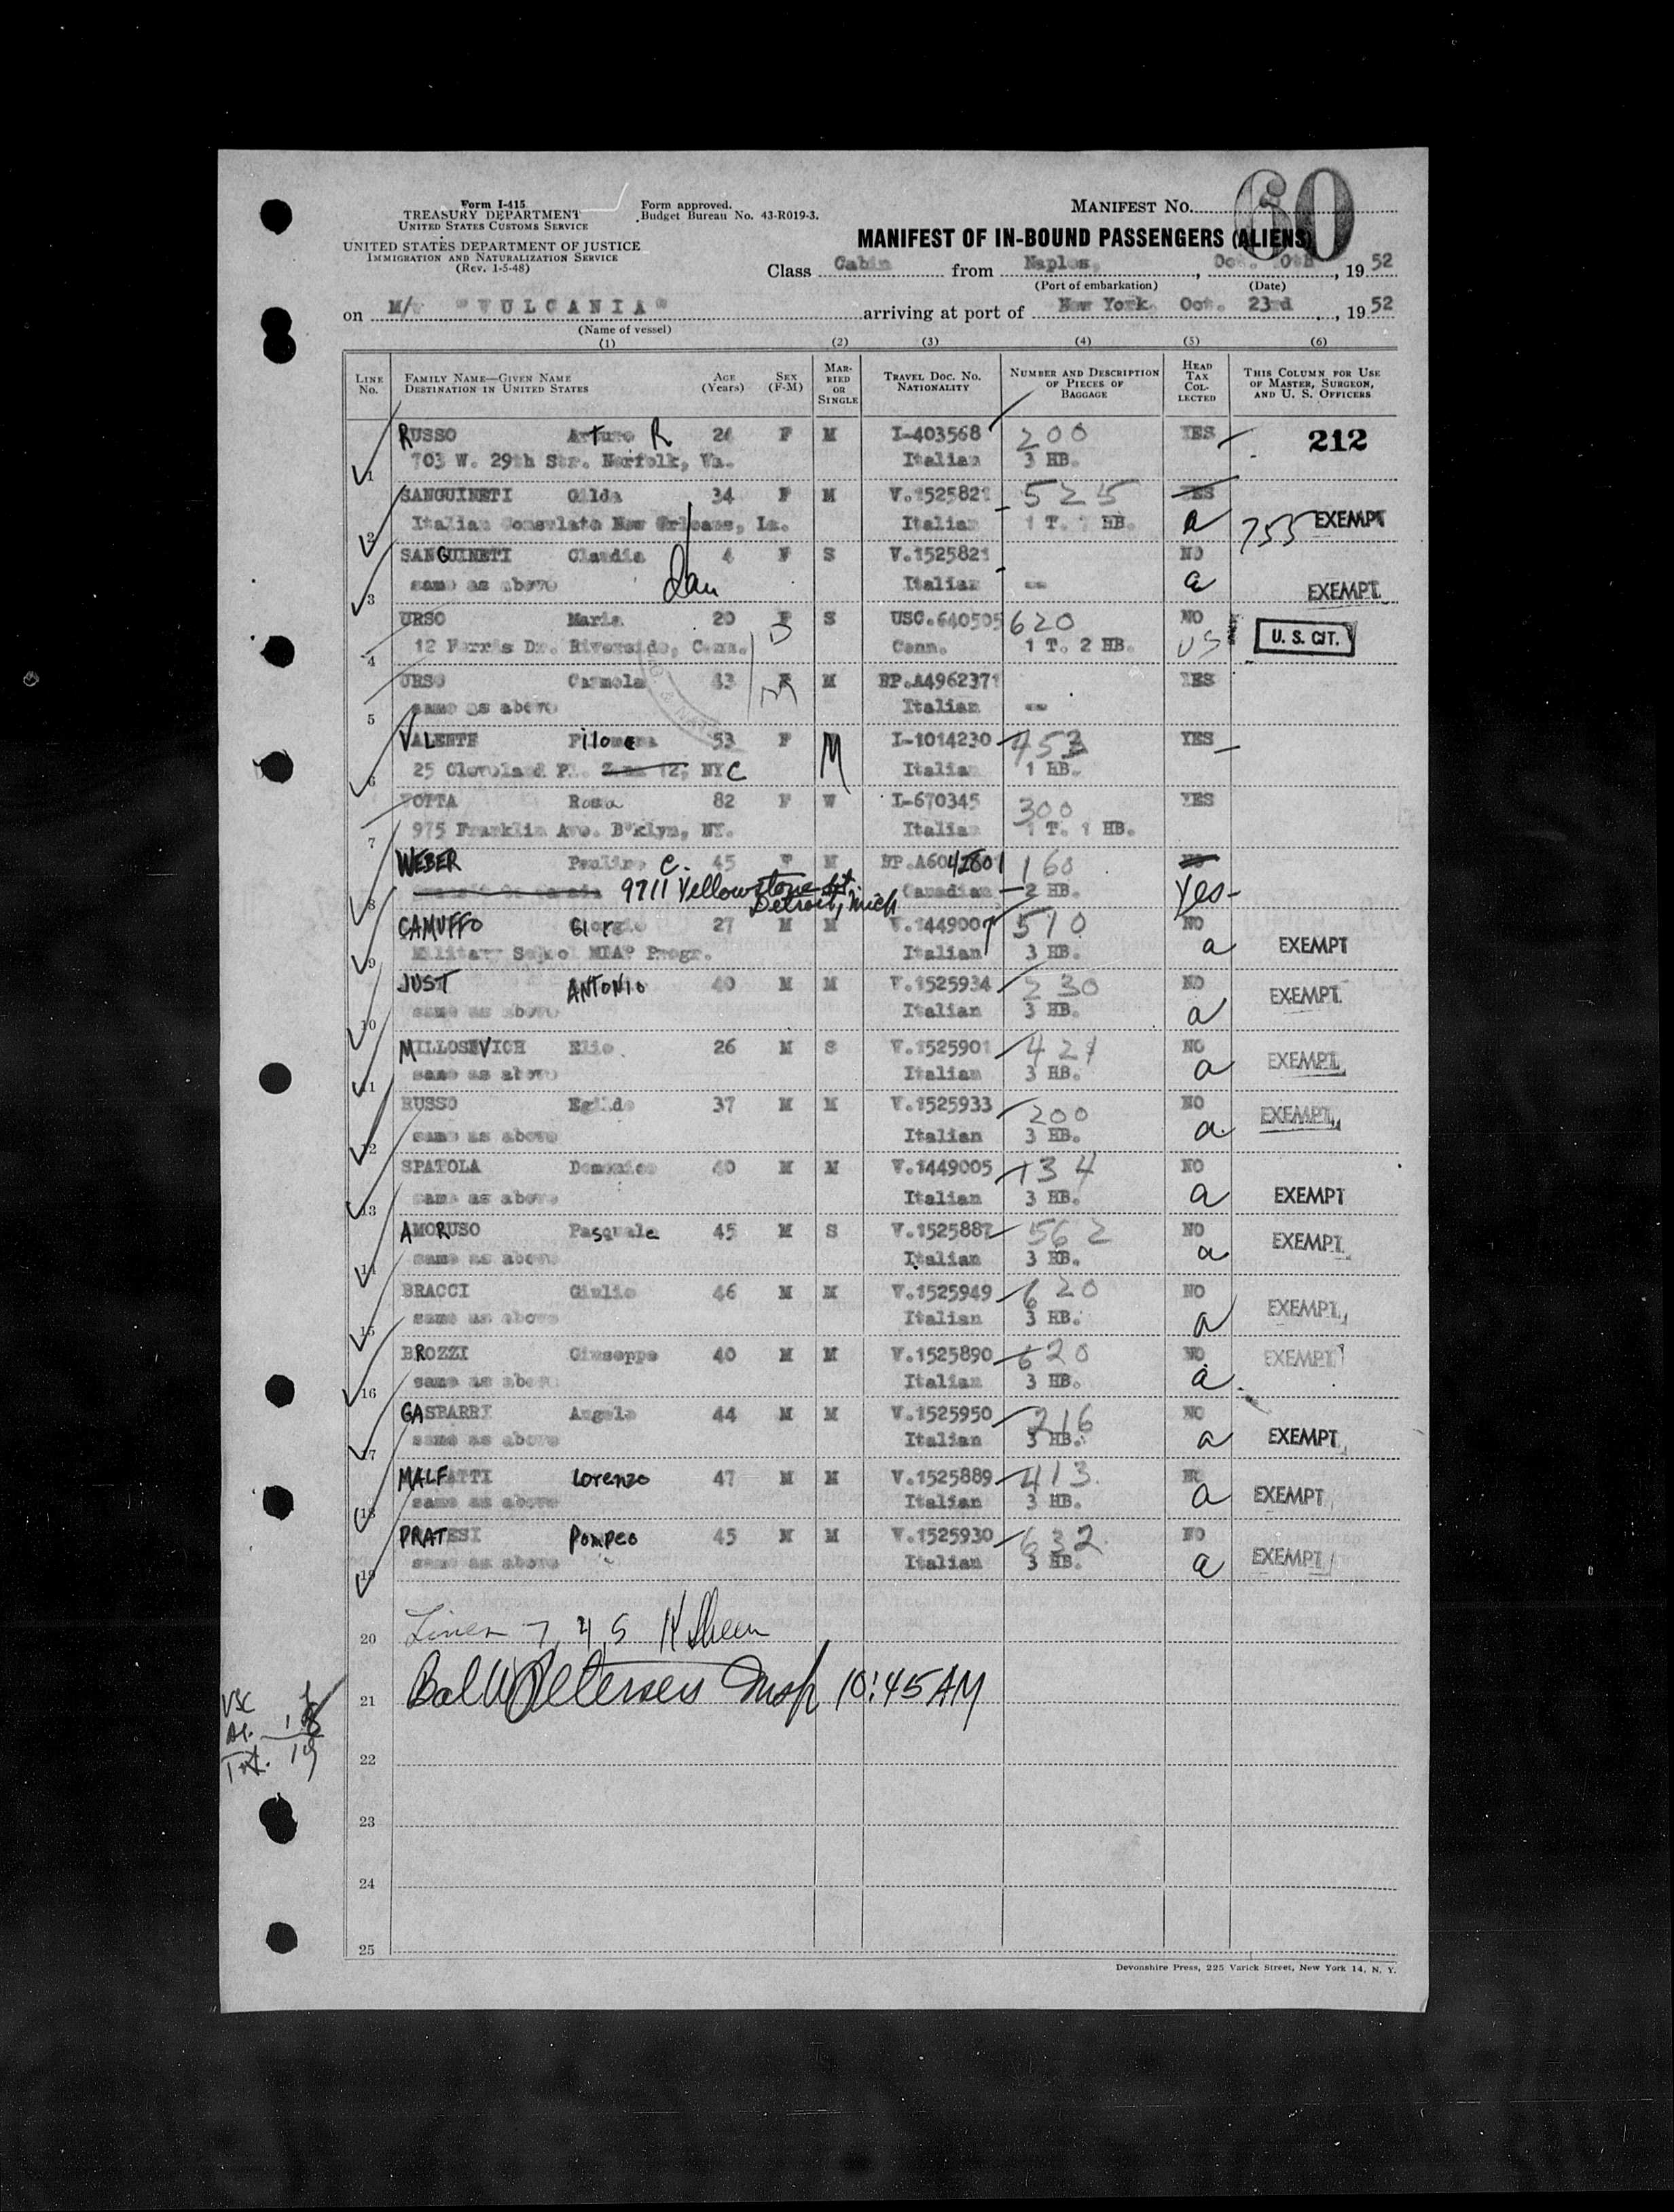 Form I-415
TREASURY DEPARTMENT
UNITED STATES CUSTOMS SERVICE
UNITED STATES DEPARTMENT OF JUSTICE
IMMIGRATION AND NATURALIZATION SERVICE
(Rev. 1-5-48)
Form approved.
Budget Bureau No. 43-R019-3.
MANIFEST NO. 60
MANIFEST OF IN-BOUND PASSENGERS (ALIENS)
Class Cabin from Naples, , Oct. , 19 52
(Port of embarkation) (Date)
on M/V "VULCANIA" arriving at port of New York Oct. 23rd , 19 52
(Name of vessel)
(1) (2) (3) (4) (5) (6)
LINE No. FAMILY NAME—GIVEN NAME DESTINATION IN UNITED STATES AGE (Years) SEX (F-M) MARRIED OR SINGLE TRAVEL DOC. NO. NATIONALITY NUMBER AND DESCRIPTION OF PIECES OF BAGGAGE HEAD TAX COLLECTED THIS COLUMN FOR USE OF MASTER, SURGEON, AND U. S. OFFICERS
RUSSO Arturo R F M I-403568 200 YES 212
1 703 W. 29th Str. Norfolk, Va. Italian 3 HB.
SANGUINETI Gilda 34 F M V.1525821 525 YES
2 Italian Consulate New Orleans, La. Italian 1 T. HB. a 755 EXEMPT
SANGUINETI Claudia 4 F S V.1525821 NO
3 same as above Italian -- a EXEMPT
URSO Maria 20 F S USC.640505 620 NO
4 12 Ferris Dr. Riverside, Conn. Conn. 1 T. 2 HB. US U. S. CIT.
URSO Carmela 43 F M RP.A4962371 YES
5 same as above Italian --
VALENTE Filomena 53 F M I-1014230 453 YES
6 25 Cleveland Pl. 12, NYC Italian 1 HB.
Rosa 82 F W I-670345 300 YES
7 975 Franklin Ave. B'klyn, NY. Italian 1 T. 1 HB.
WEBER Pauline C. 45 F M RP.A6042801 160 NO
8 9711 Yellowstone st. Detroit, Mich Canadian 2 HB. Yes
CAMUFFO Giorgio 27 M M V.1449007 510 NO
9 Military School MDAP Progr. Italian 3 HB. a EXEMPT
JUST ANTONIO 40 M M V.1525934 230 NO
10 same as above Italian 3 HB. a EXEMPT
MILLOSEVICH Elio 26 M S V.1525901 421 NO
11 same as above Italian 3 HB. a EXEMPT
RUSSO Egildo 37 M M V.1525933 200 NO
12 same as above Italian 3 HB. a EXEMPT
SPATOLA Domenico 40 M M V.1449005 134 NO
13 same as above Italian 3 HB. a EXEMPT
AMORUSO Pasquale 45 M S V.1525887 562 NO
14 same as above Italian 3 HB. a EXEMPT
BRACCI Giulio 46 M M V.1525949 620 NO
15 same as above Italian 3 HB. a EXEMPT
BROZZI Giuseppe 40 M M V.1525890 620 NO
16 same as above Italian 3 HB. a EXEMPT
GASBARRI Angelo 44 M M V.1525950 216 NO
17 same as above Italian 3 HB. a EXEMPT
MALFATTI Lorenzo 47 M M V.1525889 413 NO
18 same as above Italian 3 HB. a EXEMPT
PRATESI Pompeo 45 M M V.1525930 632 NO
19 same as above Italian 3 HB. a EXEMPT
20 Lines 7, 4, 5
21 Petersen Insp 10:45 AM
USC 1
Al. 18
Tot. 19
22
23
24
25
Devonshire Press, 225 Varick Street, New York 14, N. Y.